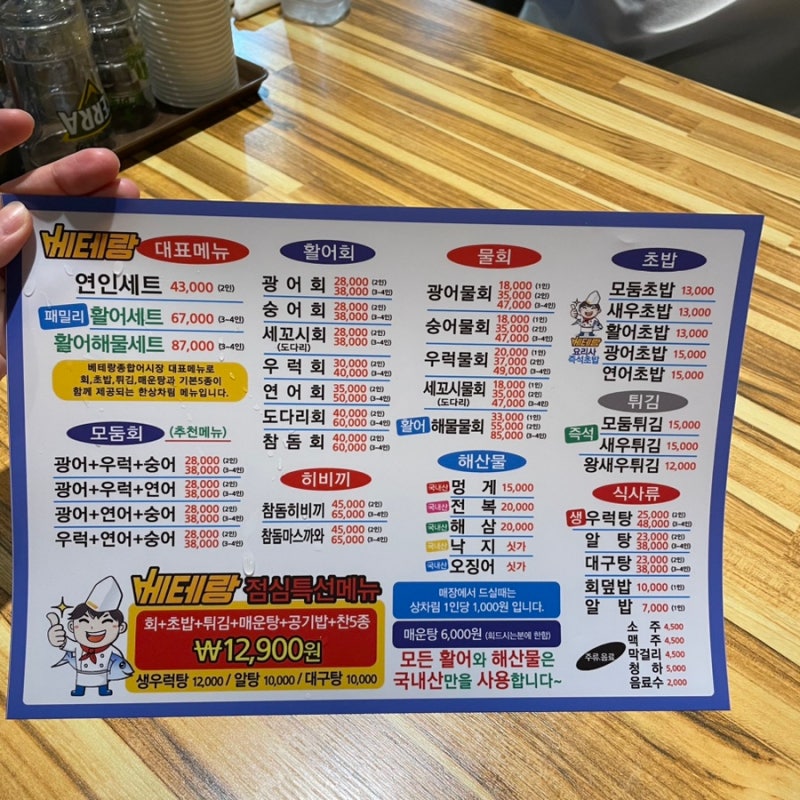 TERRA
베테랑 대표메뉴
연인세트 43,000 (2인)
패밀리 활어세트 67,000 (3~4인)
활어해물세트 87,000 (3~4인)
베테랑종합어시장 대표메뉴로
회,초밥,튀김,매운탕과 기본5종이
함께 제공되는 한상차림 메뉴입니다.
모둠회 (추천메뉴)
광어+우럭+숭어 28,000 (2인) 38,000 (3~4인)
광어+우럭+연어 28,000 (2인) 38,000 (3~4인)
광어+연어+숭어 28,000 (2인) 38,000 (3~4인)
우럭+연어+숭어 28,000 (2인) 38,000 (3~4인)
활어회
광어회 28,000 (2인) 38,000 (3~4인)
숭어회 28,000 (2인) 38,000 (3~4인)
세꼬시회 (도다리) 28,000 (2인) 38,000 (3~4인)
우럭회 30,000 (2인) 40,000 (3~4인)
연어회 35,000 (2인) 50,000 (3~4인)
도다리회 40,000 (2인) 60,000 (3~4인)
참돔회 40,000 (2인) 60,000 (3~4인)
히비끼
참돔히비끼 45,000 (2인) 65,000 (3~4인)
참돔마스까와 45,000 (2인) 65,000 (3~4인)
물회
광어물회 18,000 (1인) 35,000 (2인) 47,000 (3~4인)
숭어물회 18,000 (1인) 35,000 (2인) 47,000 (3~4인)
우럭물회 20,000 (1인) 37,000 (2인) 49,000 (3~4인)
세꼬시물회 (도다리) 18,000 (1인) 35,000 (2인) 47,000 (3~4인)
활어 해물물회 33,000 (1인) 55,000 (2인) 85,000 (3~4인)
해산물
국내산 멍게 15,000
국내산 전복 20,000
국내산 해삼 20,000
국내산 낙지 싯가
국내산 오징어 싯가
초밥
베테랑
요리사
즉석초밥
모둠초밥 13,000
새우초밥 13,000
활어초밥 13,000
광어초밥 15,000
연어초밥 15,000
튀김
즉석
모둠튀김 15,000
새우튀김 15,000
왕새우튀김 12,000
식사류
생우럭탕 25,000 (2인) 48,000 (3~4인)
알탕 23,000 (2인) 38,000 (3~4인)
대구탕 23,000 (2인) 38,000 (3~4인)
회덮밥 10,000 (1인)
알밥 7,000 (1인)
주류,음료
소주 4,500
맥주 4,500
막걸리 4,500
청하 5,000
음료수 2,000
베테랑 점심특선메뉴
회+초밥+튀김+매운탕+공기밥+찬5종
₩12,900원
생우럭탕 12,000 / 알탕 10,000 / 대구탕 10,000
매장에서 드실때는
상차림 1인당 1,000원 입니다.
매운탕 6,000원 (회드시는분에 한함)
모든 활어와 해산물은
국내산만을 사용합니다~